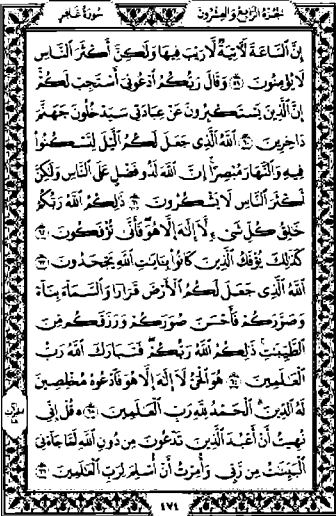 الجزء الرابع والعشرون سورة غافر
إن الساعة لآتية لا ريب فيها ولكن أكثر الناس
لا يؤمنون ٥٩ وقال ربكم ادعوني أستجب لكم
إن الذين يستكبرون عن عبادتي سيدخلون جهنم
داخرين ٦٠ الله الذي جعل لكم الليل لتسكنوا
فيه والنهار مبصرا إن الله لذو فضل على الناس ولكن
أكثر الناس لا يشكرون ٦١ ذلكم الله ربكم
خالق كل شيء لا إله إلا هو فأنى تؤفكون ٦٢
كذلك يؤفك الذين كانوا بآيات الله يجحدون ٦٣
الله الذي جعل لكم الأرض قرارا والسماء بناء
وصوركم فأحسن صوركم ورزقكم من
الطيبات ذلكم الله ربكم فتبارك الله رب
العالمين ٦٤ هو الحي لا إله إلا هو فادعوه مخلصين
له الدين الحمد لله رب العالمين ٦٥ قل إني
نهيت أن أعبد الذين تدعون من دون الله لما جاءني
البينات من ربي وأمرت أن أسلم لرب العالمين ٦٦
٤٧٤